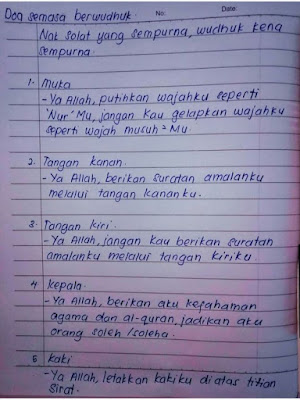 Doa semasa berwudhuk:
No:
Date:
Nak solat yang sempurna, wudhuk kena
sempurna.
1- muka
- Ya Allah, putihkan wajahku seperti
'Nur' Mu, jangan kau gelapkan wajahku
seperti wajah musuh²Mu
2. Tangan kanan.
- Ya Allah, berikan suratan amalanku
melalui tangan kananku.
3. Tangan kiri.
- Ya Allah, jangan kau berikan suratan
amalanku melalui tangan kiriku.
4 kepala.
- Ya Allah, berikan aku kefahaman
agama dan al-quran, jadikan aku
orang soleh /soleha.
5 kaki
- Ya Allah, letakkan kakiku di atas titian
Sirat.